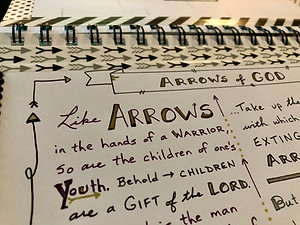 ARROWS of GOD
Like ARROWS
in the hands of a WARRIOR,
so are the children of one's
Youth. Behold → CHILDREN
are a GIFT of the LORD.
is the man
...Take up th
with which
EXTING
ARR
But